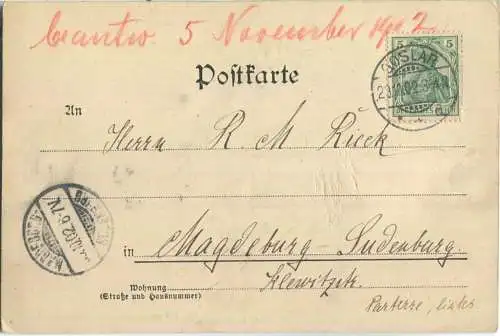 5 November 1902
5 5
GOSLAR
Postkarte
An
Herrn R M Rieck
MAGDEBURG
in Magdeburg-Sudenburg.
Wohnung
(Straße und Hausnummer)
Parterre, links